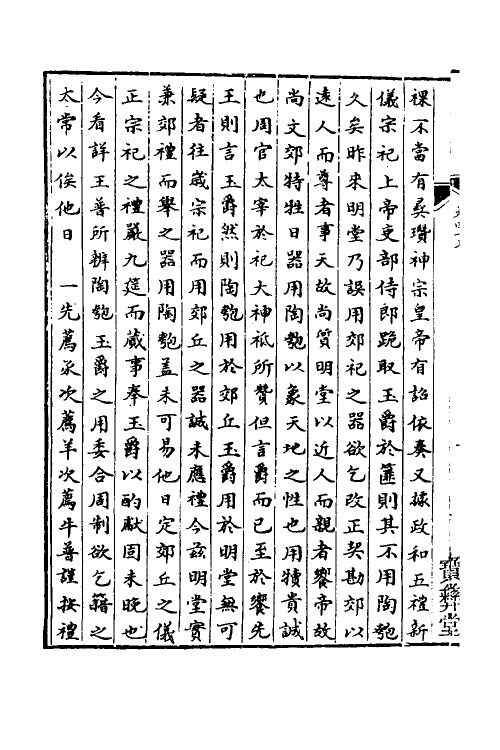 祼不當有彛瓚神宗皇帝有詔依奏又據政和五禮新
儀宗祀上帝吏部侍郎跪取玉爵於篚則其不用陶匏
久矣昨来明堂乃誤用郊祀之器欲乞改正契勘郊以
逺人而尊者事天故尚質明堂以近人而親者饗帝故
尚文郊特牲曰器用陶匏以象天地之性也用犢貴誠
也周官太宰於祀大神祗所贊但言爵而已至於饗先
王則言玉爵然則陶匏用於郊丘玉爵用於明堂無可
疑者往歳宗祀而用郊丘之器誠未應禮今兹明堂實
兼郊禮而舉之器用陶匏盖未可易他日定郊丘之儀
正宗祀之禮嚴九筵而蕆事奉玉爵以酌獻固未晚也
今看詳王普所辨陶匏玉爵之用委合周制欲乞籍之
太常以俟他日　一先薦豕次薦羊次薦牛普謹按禮
寶彛堂